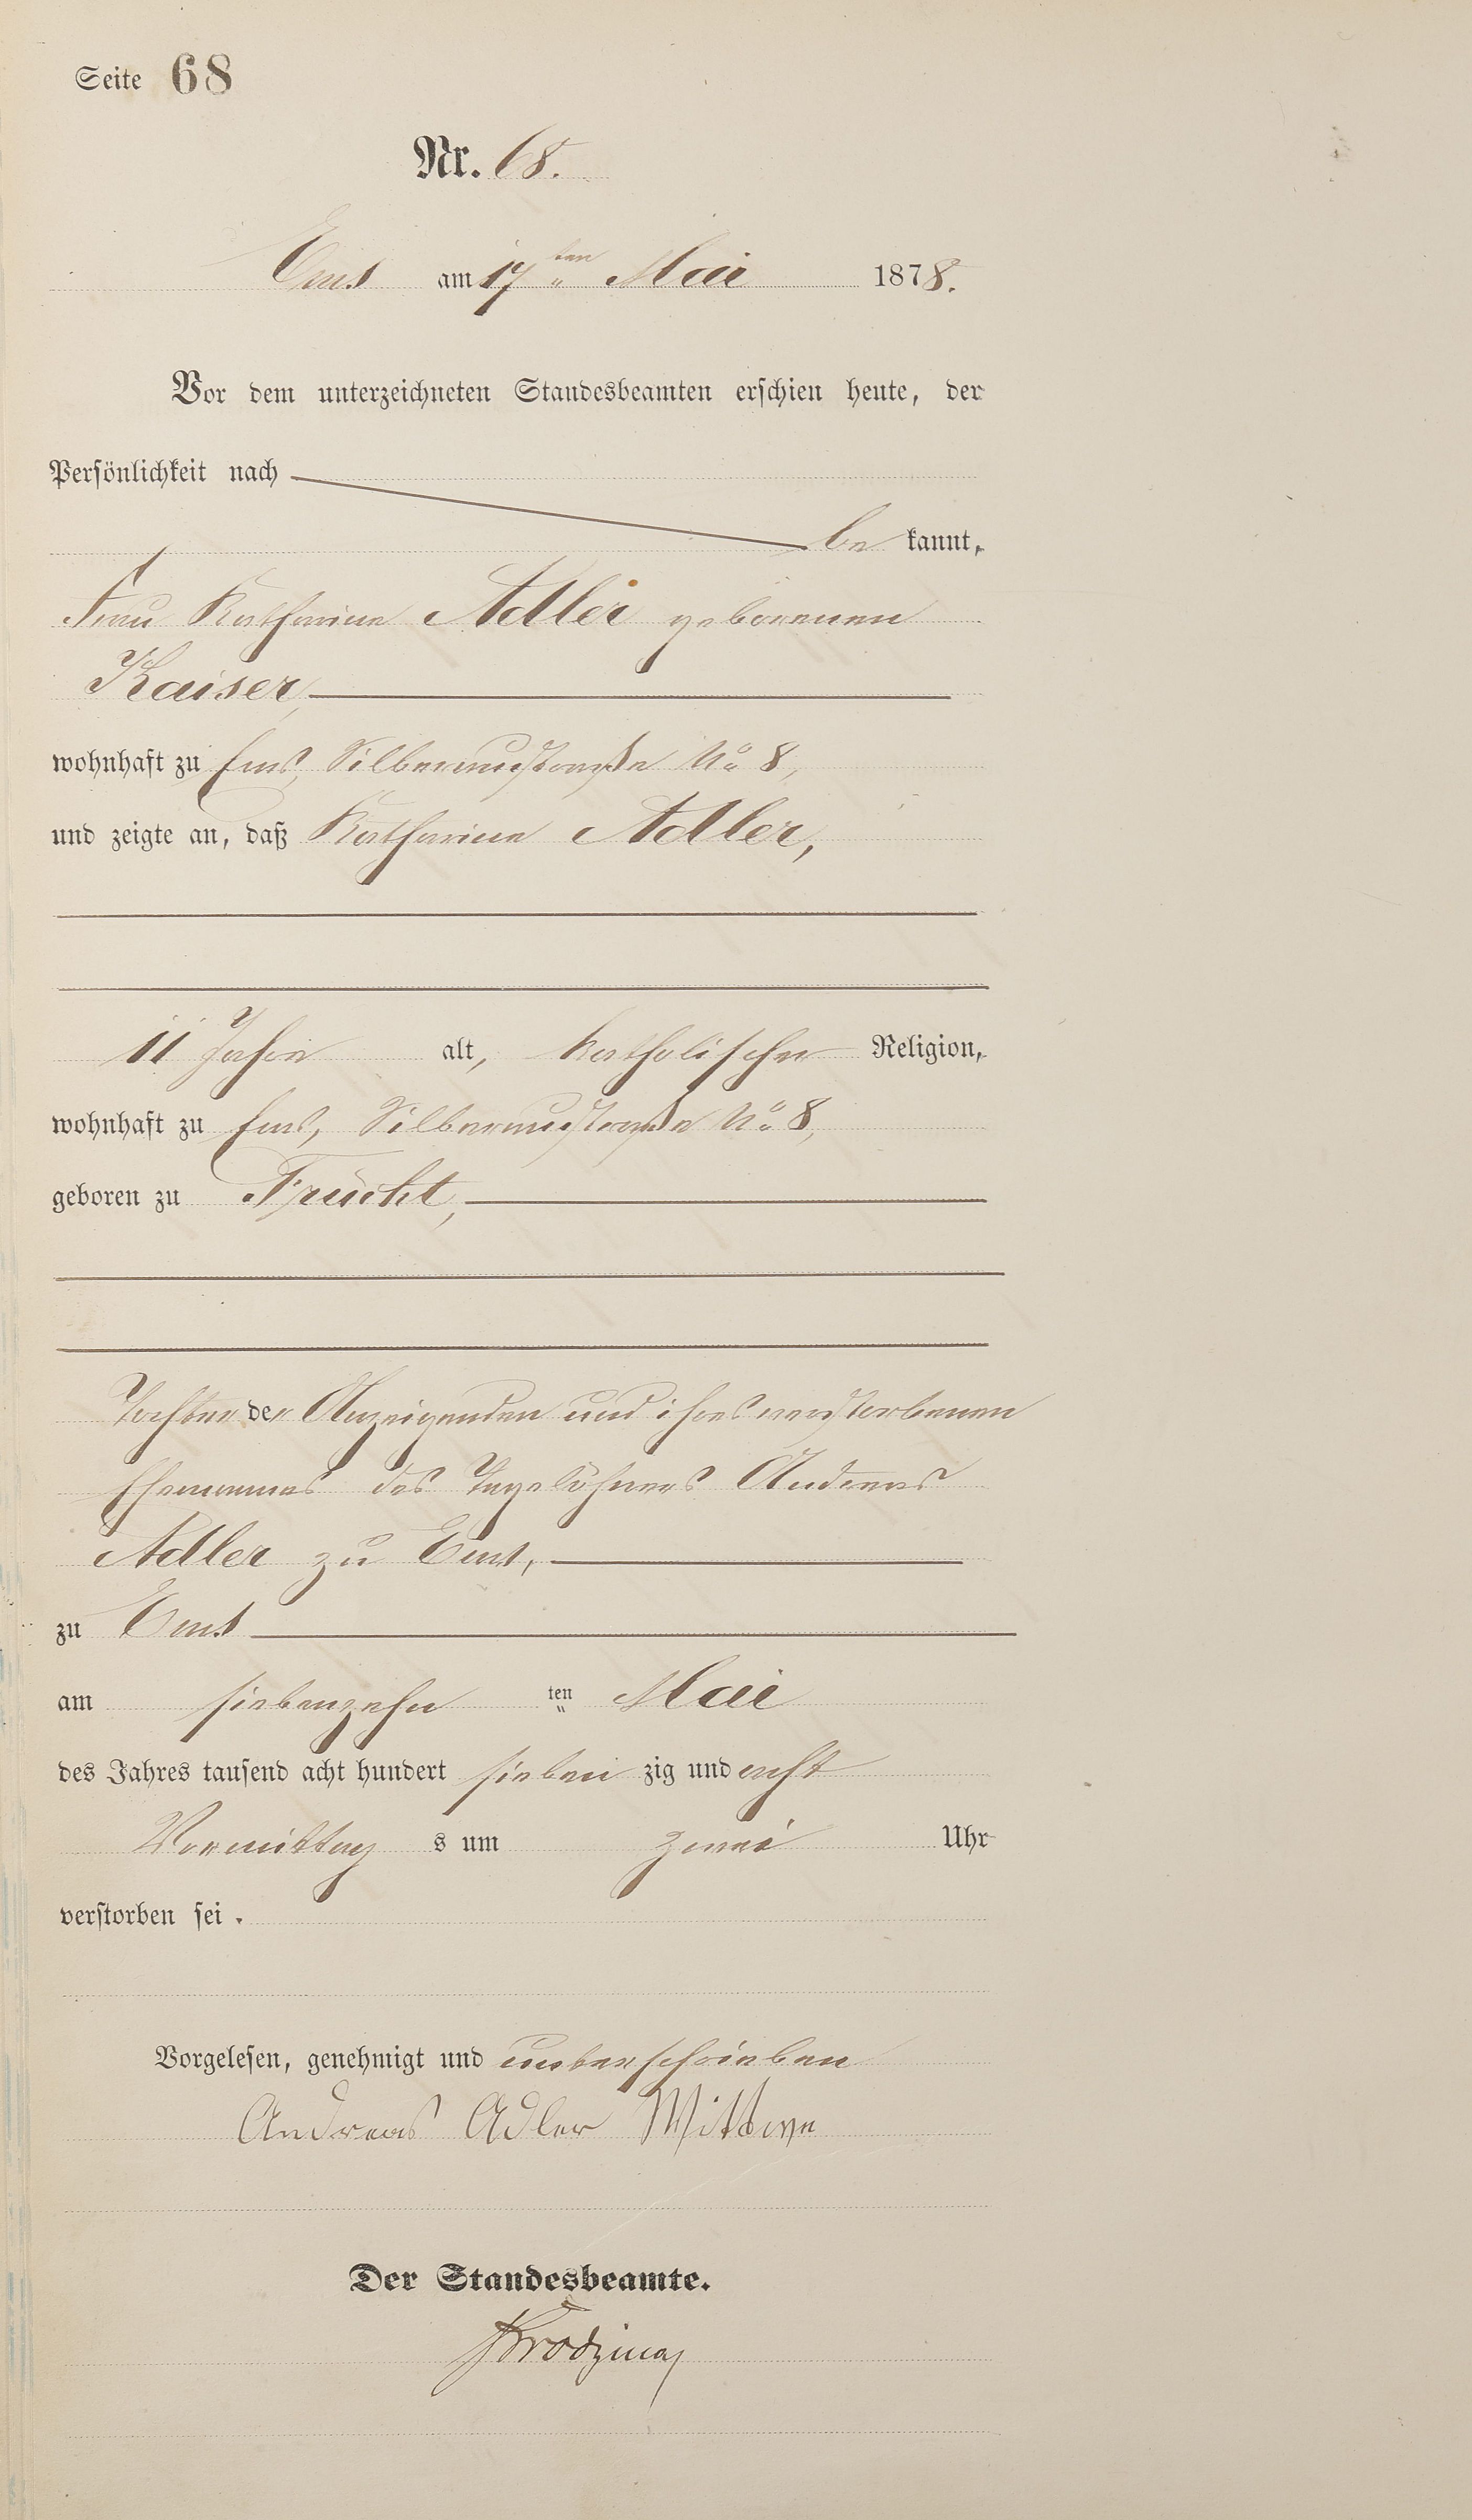 Seite 68
Nr. 68.
Ems am 17ten Mai 1878.
Vor dem unterzeichneten Standesbeamten erschien heute, der
Persönlichkeit nach
be kannt,
Frau Katharine Adler geborenen
Kaiser,
wohnhaft zu Ems, Silberaustraße No 8,
und zeigte an, daß Katharine Adler,
11 Jahre alt, katholischer Religion,
wohnhaft zu Ems, Silberaustraße No 8,
geboren zu Frücht,
Tochter der Anzeigenden und ihres verstorbenen
Ehemannes des Tagelöhners Andreas
Adler zu Ems,
zu Ems
am siebenzehn ten Mai
des Jahres tausend acht hundert sieben zig und acht
Vormittag s um zwei Uhr
verstorben sei.
Vorgelesen, genehmigt und unterschrieben
Andreas Adler Wittwe
Der Standesbeamte.